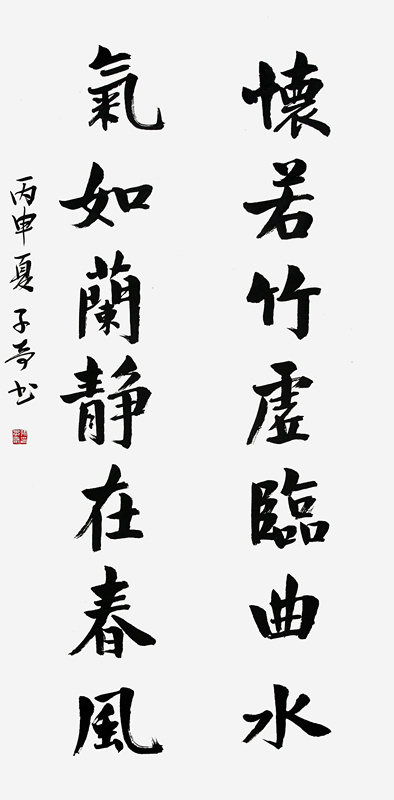 懷若竹虛臨曲水
氣如蘭靜在春風
丙申夏子奇书